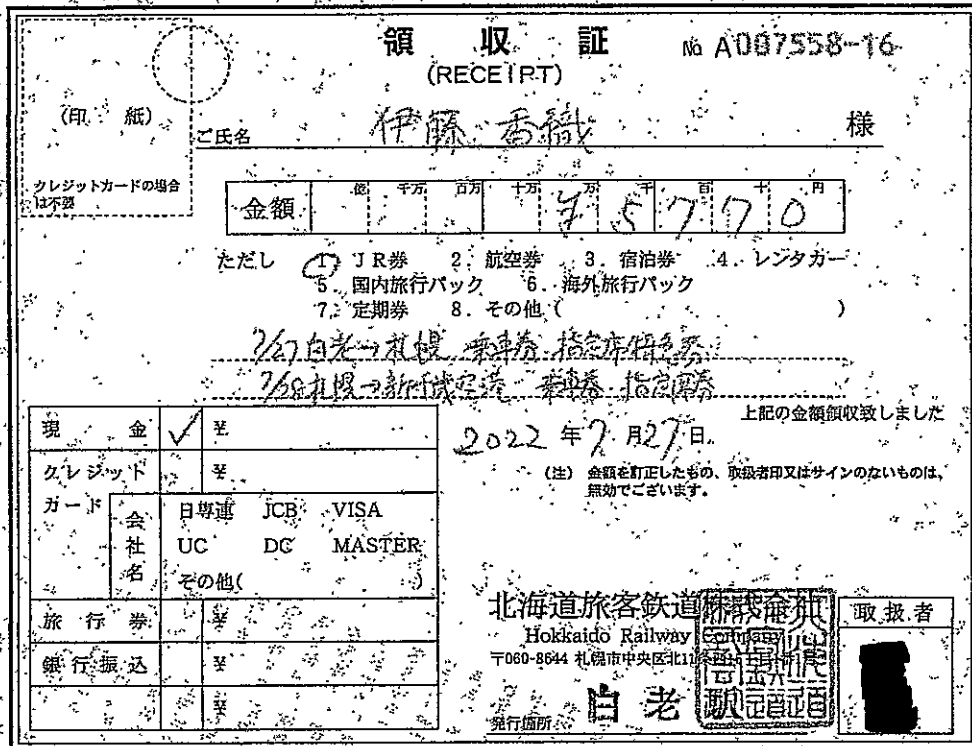 領収証 № A007558-16
(RECEIPT)
(印紙)
ご氏名 伊藤 香織 様
クレジットカードの場合
は不要
億 千万 百万 十万 万 千 百 十 円
金額 ¥5770
ただし 1. JR券 2. 航空券 3. 宿泊券 4. レンタカー
5. 国内旅行パック 6. 海外旅行パック
7. 定期券 8. その他 ( )
7/27白老→札幌 乗車券 指定席特急券
7/28札幌→新千歳空港 乗車券 指定席券
上記の金額領収致しました
現金 ✓ ¥
2022年7月27日
クレジット ¥
(注) 金額を訂正したもの、取扱者印又はサインのないものは、
無効でございます。
カード 会社名 日専連 JCB VISA
UC DC MASTER
その他( )
旅行券 ¥
銀行振込 ¥
¥
北海道旅客鉄道株式会社
取扱者
Hokkaido Railway Company
〒060-8644 札幌市中央区北11条西15丁目
発行箇所 白老